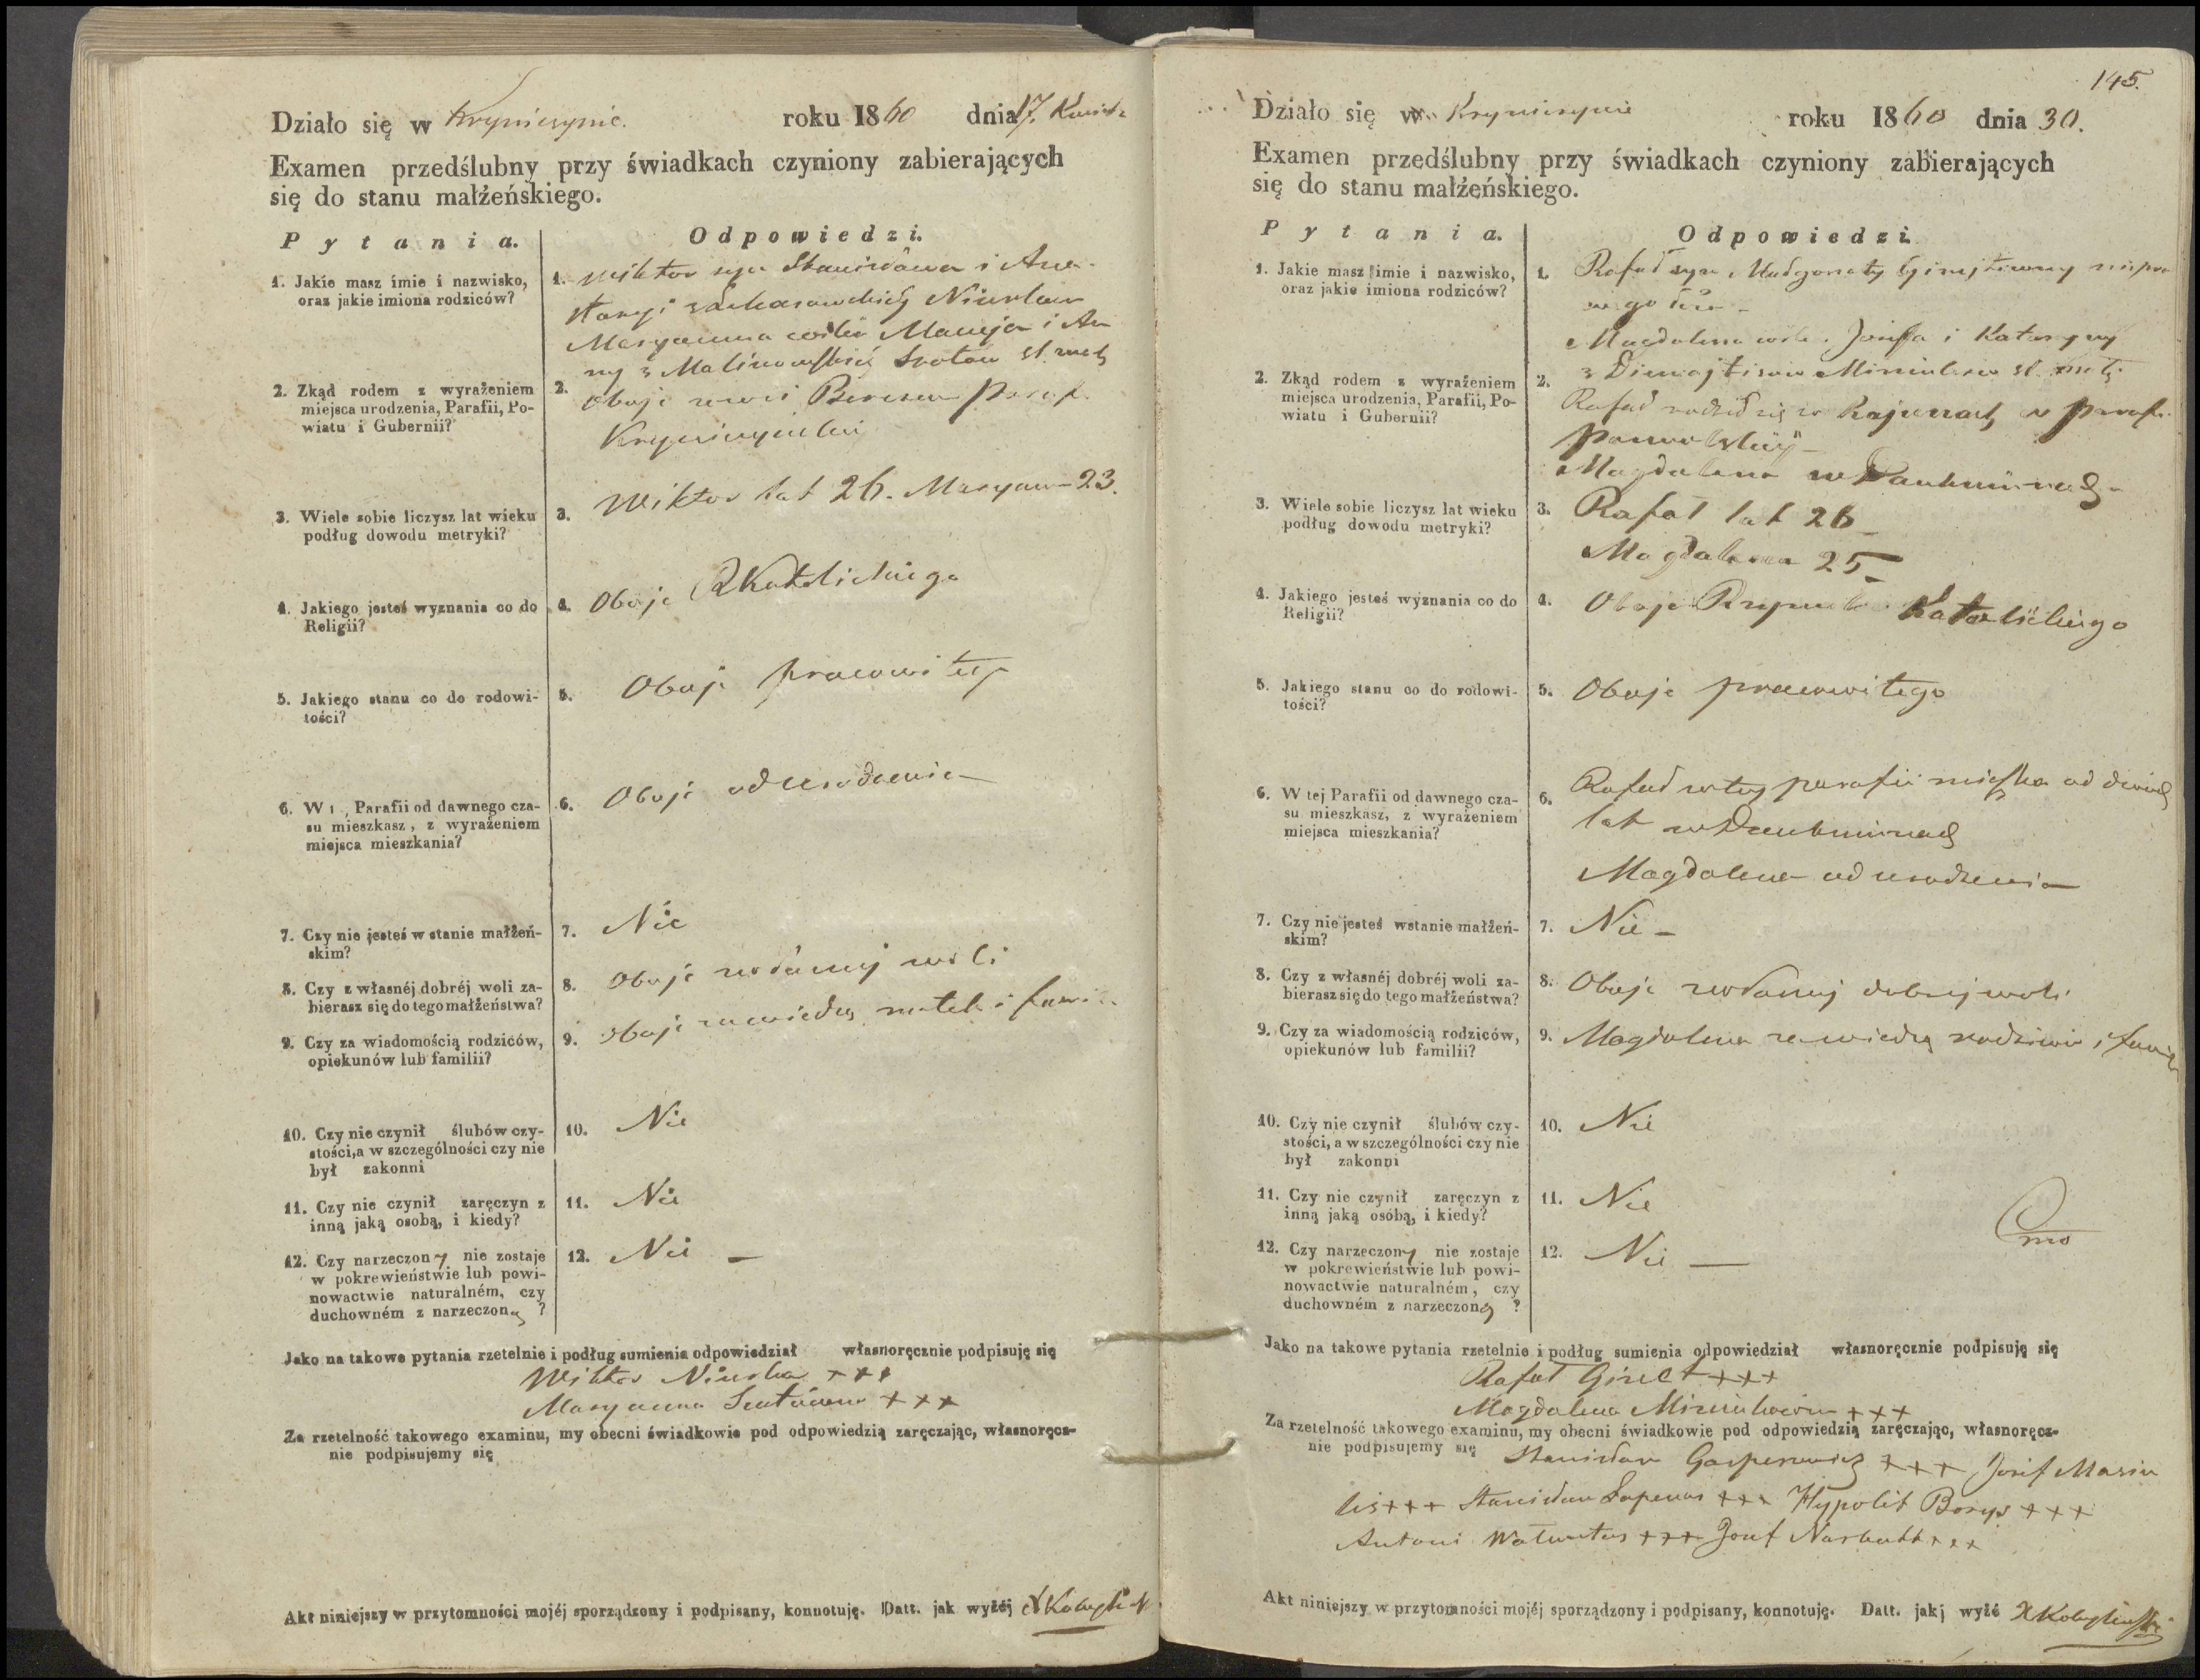 Działo się w Krynicznie. roku 1860 dnia 17. Kwiet
Examen przedślubny przy świadkach czyniony zabierających
się do stanu małżeńskiego.
P y t a n i a.
O d p o w i e d z i.
1. Jakie masz imie i nazwisko,
oraz jakie imiona rodziców?
1. Wiktor syn Stanisława i Ana-
Maryanna córka Macieja i An
ny z Malinowskich
2. Zkąd rodem z wyrażeniem
miejsca urodzenia, Parafii, Po-
wiatu i Gubernii?
2. oboje we wsi paraf.
3. Wiele sobie liczysz lat wieku
podług dowodu metryki?
3. Wiktor lat 26. Maryan- 23.
4. Jakiego jesteś wyznania co do
Religii?
4. Oboje RKatolickiego
5. Jakiego stanu co do rodowi-
tości?
5. Oboje pracowiteg
6. W t , Parafii od dawnego cza-
su mieszkasz, z wyrażeniem
miejsca mieszkania?
6. Oboje od urodzenia
7. Czy nie jesteś w stanie małżeń-
skim?
7. Nie
8. Czy z własnéj dobréj woli za-
bierasz się do tego małżeństwa?
8. Oboje z własnej woli
9. Czy za wiadomością rodziców,
opiekunów lub familii?
9. oboje za wiedzą matek i
10. Czy nie czynił ślubów czy-
stości, a w szczególności czy nie
był zakonni
10. Nie
11. Czy nie czynił zaręczyn z
inną jaką osobą, i kiedy?
11. Nie
12. Czy narzeczony nie zostaje
w pokrewieństwie lub powi-
nowactwie naturalném, czy
duchowném z narzeczoną ?
12. Nie —
Jako na takowe pytania rzetelnie i podług sumienia odpowiedział własnoręcznie podpisuję się
Wiktor +++
Maryanna +++
Za rzetelność takowego examinu, my obecni świadkowie pod odpowiedzią zaręczając, własnoręcz-
nie podpisujemy się
Akt niniejszy w przytomności mojéj sporządzony i podpisany, konnotuję. Datt. jak wyżéj
145.
Działo się w Krynicznie roku 1860 dnia 30.
Examen przedślubny przy świadkach czyniony zabierających
się do stanu małżeńskiego.
P y t a n i a.
O d p o w i e d z i.
1. Jakie masz imie i nazwisko,
oraz jakie imiona rodziców?
1. Rafał syn Małgorzaty niepra
wego łoża
Magdalena córka Józefa i Katarzyny
2. Zkąd rodem z wyrażeniem
miejsca urodzenia, Parafii, Po-
wiatu i Gubernii?
2. Rafał rodził się w paraf.
Magdalena w
3. Wiele sobie liczysz lat wieku
podług dowodu metryki?
3. Rafał lat 26
Magdalena 25
4. Jakiego jesteś wyznania co do
Religii?
4. Oboje Katolickiego
5. Jakiego stanu co do rodowi-
tości?
5. Oboje pracowitego
6. W tej Parafii od dawnego cza-
su mieszkasz, z wyrażeniem
miejsca mieszkania?
6. Rafał w tej parafii mieszka od
lat w
Magdalena od urodzenia
7. Czy nie jesteś wstanie małżeń-
skim?
7. Nie
8. Czy z własnéj dobréj woli za-
bierasz się do tego małżeństwa?
8. Oboje z własnej dobrej woli
9. Czy za wiadomością rodziców,
opiekunów lub familii?
9. Magdalena za wiedzą rodziców i
10. Czy nie czynił ślubów czy-
stości, a w szczególności czy nie
był zakonni
10. Nie
11. Czy nie czynił zaręczyn z
inną jaką osobą, i kiedy?
11. Nie
12. Czy narzeczony nie zostaje
w pokrewieństwie lub powi-
nowactwie naturalném, czy
duchowném z narzeczoną ?
12. Nie —
Jako na takowe pytania rzetelnie i podług sumienia odpowiedział własnoręcznie podpisuję się
Rafał +++
Magdalena +++
Za rzetelność takowego examinu, my obecni świadkowie pod odpowiedzią zaręczając, własnoręcz-
nie podpisujemy się Stanisław +++ Józef Masiu
lis +++ Stanisław Łapenas +++ Hypolit Borys +++
Antoni +++ Józef Narbutt +++
Akt niniejszy w przytomności mojéj sporządzony i podpisany, konnotuję. Datt. jakj wyżé XKobyliński